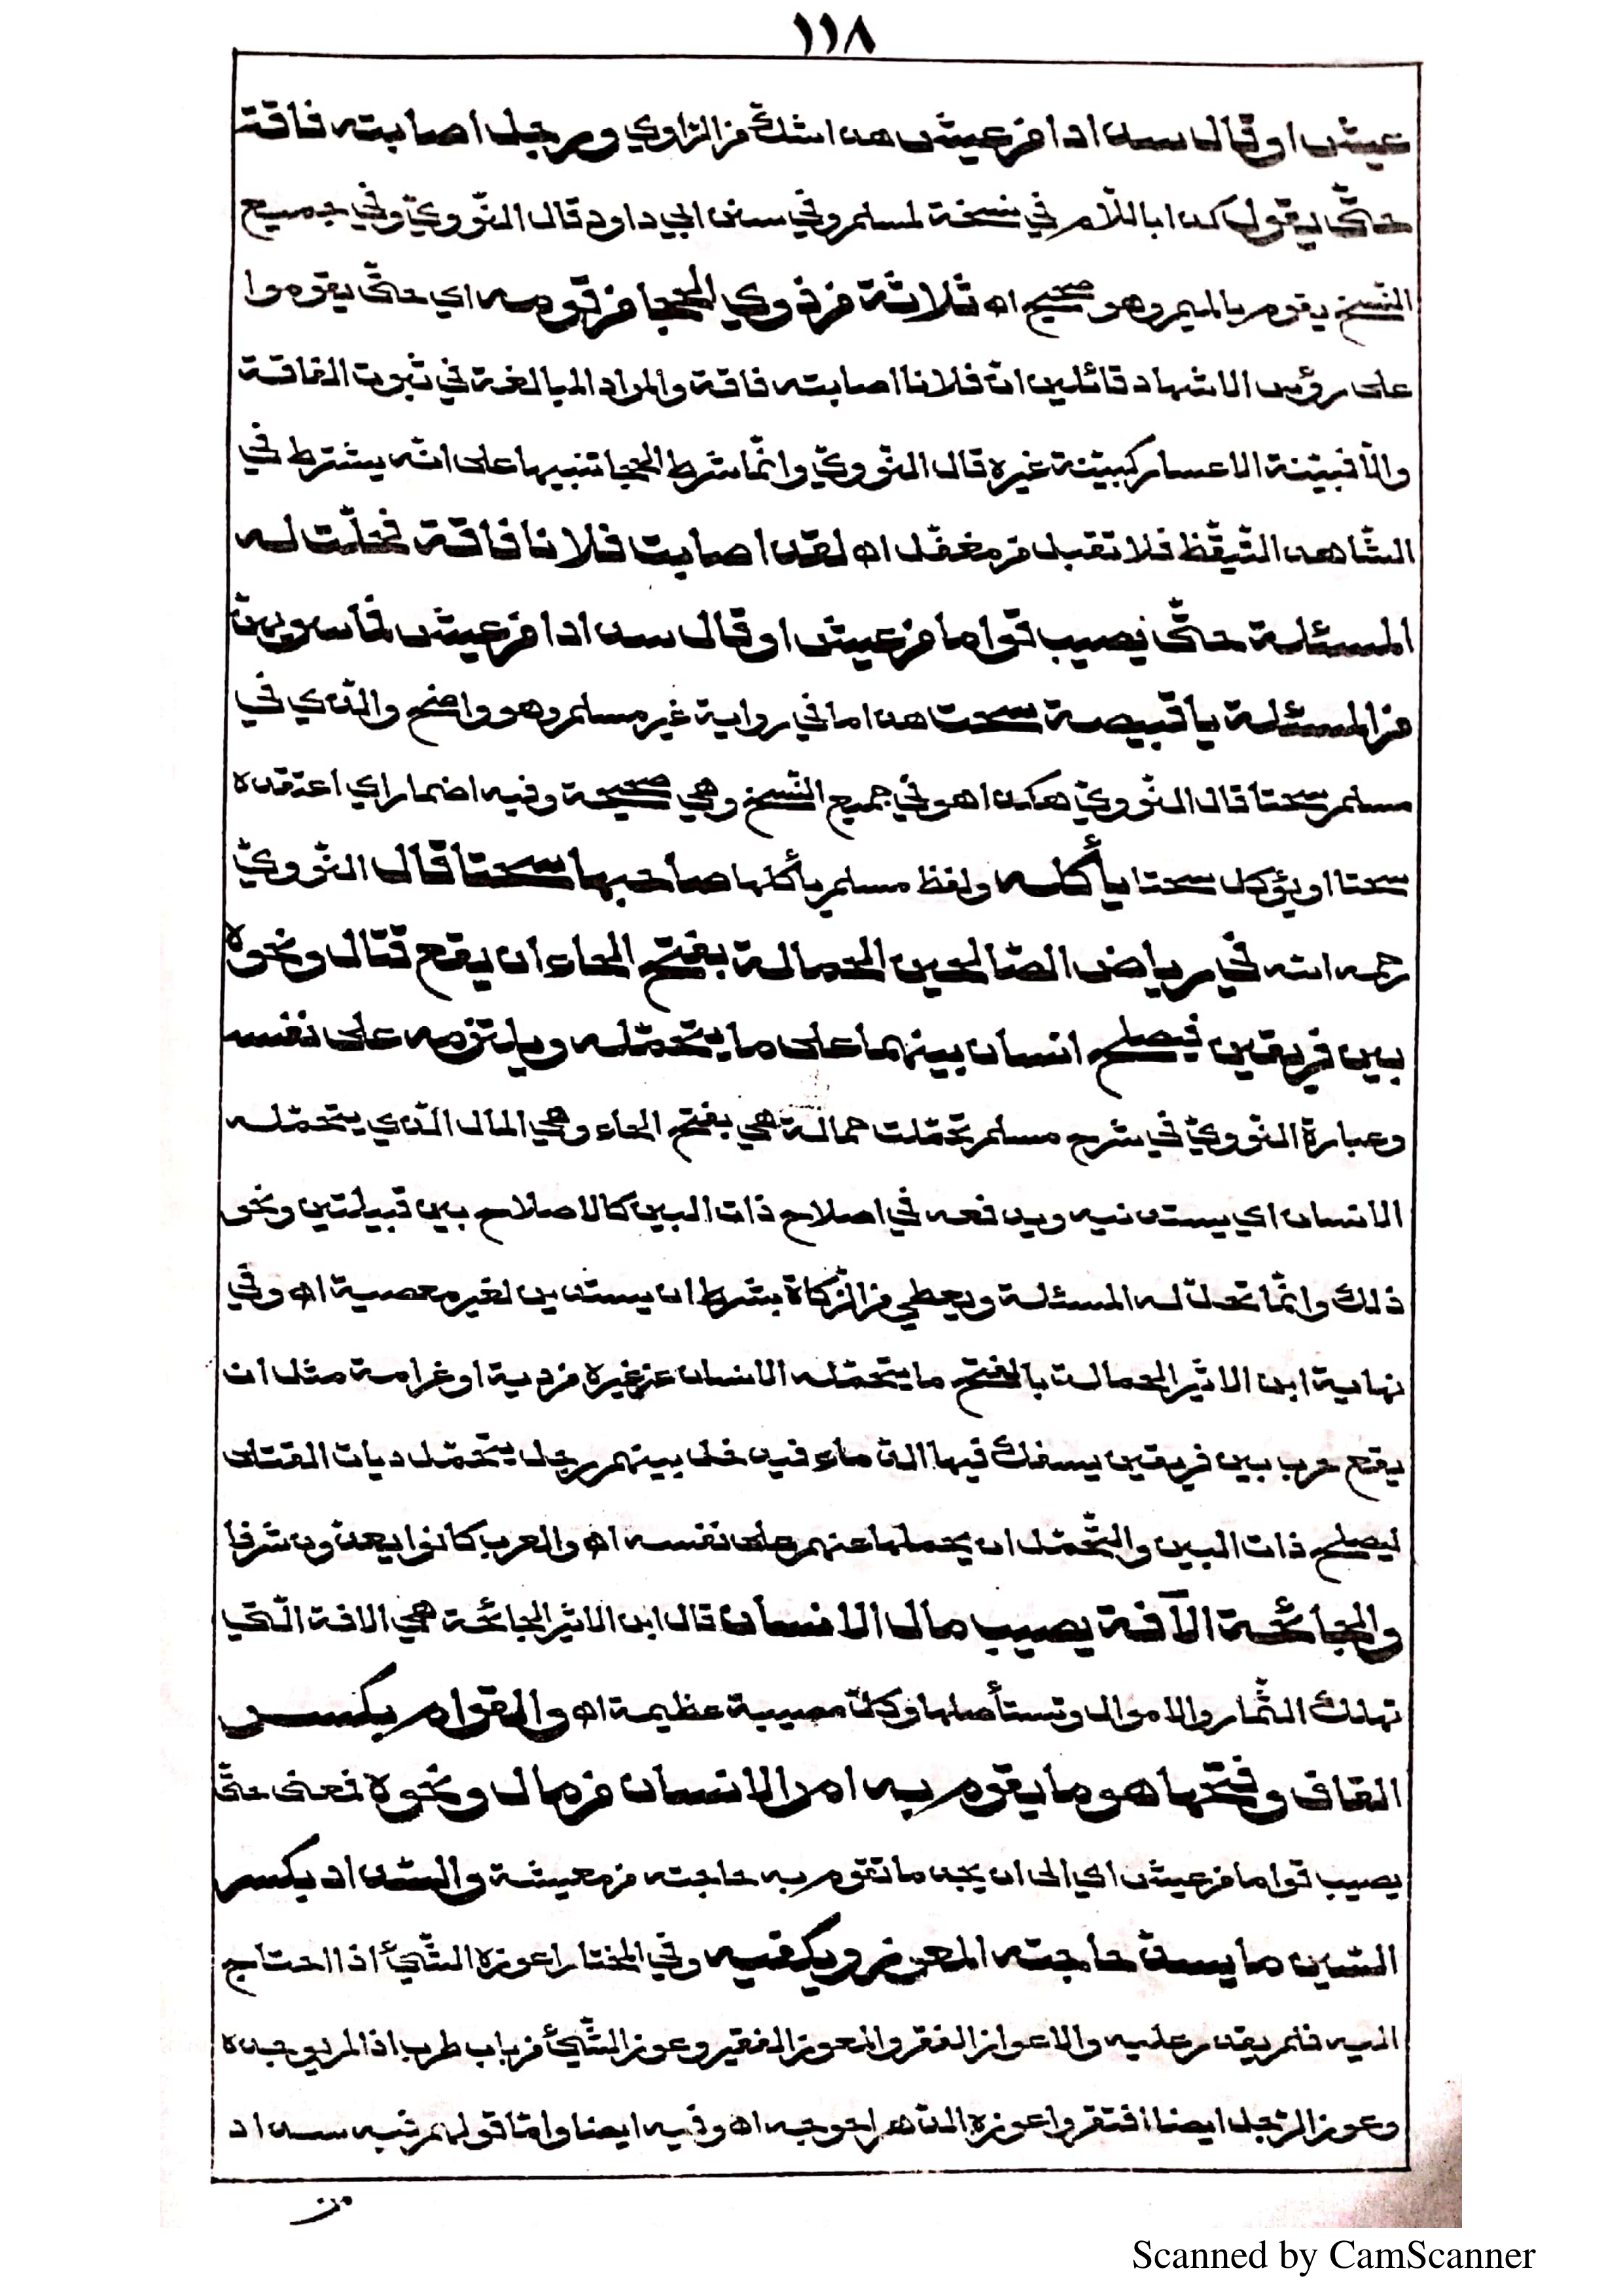 ١١٨
عيش او قال سدادا من عيش هذا شك من الراوي ورجل اصابته فاقة
حتّى يقول كذا باللّام في نسخة لمسلم وفي سنن ابي داود قال النّوويّ وفي جميع
النّسخ يقوم بالميم وهو صحيح اه ثلاثة من ذوي الحجا من قومه اي حتّى يقوموا
على رؤس الاشهاد قائلين انّ فلانا اصابته فاقة والمراد المبالغة في ثبوت الفاقة
والّا فبيّنة الاعسار كبيّنة غيره قال النّوويّ وانّما شرط الحجا تنبيها على انّه يشترط في
الشّاهد التّيقّظ فلا تقبل من مغفّل اه لقد اصابت فلانا فاقة فحلّت له
المسئلة حتّى يصيب قواما من عيش او قال سدادا من عيش فما سواهنّ
من المسئلة يا قبيصة سحت هذا ما في رواية غير مسلم وهو واضح والّذي في
مسلم سحتا قال النّوويّ هكذا هو في جميع النّسخ وهي صحيحة وفيه اضمار اي اعتقده
سحتا او يؤكل سحتا يأكله ولفظ مسلم يأكلها صاحبها سحتا قال النّوويّ
رحمه الله في رياض الصّالحين الحمالة بفتح الحاء ان يقع قتال ونحوه
بين فريقين فيصلح انسان بينهما على ما يتحمّله ويلتزمه على نفسه
وعبارة النّوويّ في شرح مسلم تحمّلت حمالة هي بفتح الحاء وهي المال الّذي يتحمّله
الانسان اي يستدنيه ويدفعه في اصلاح ذات البين كالاصلاح بين قبيلتين ونحو
ذلك وانّما تحلّ له المسئلة ويعطي من الزّكاة بشرط ان يستدين لغير معصية اه وفي
نهاية ابن الاثير الحمالة بالفتح ما يتحمّله الانسان عن غيره من دية او غرامة مثل ان
يقع حرب بين فريقين يسفك فيها الدّماء فيدخل بينهم رجل يتحمّل ديات القتلى
ليصلح ذات البين والتّحمّل ان يحملها عنهم على نفسه اه والعرب كانوا يعدّون شرفا
والجائحة الآفة يصيب مال الانسان قال ابن الاثير الجائحة هي الافة الّتي
تهلك الثّمار والاموال وتستأصلها وكلّ مصيبة عظيمة اه والقوام بكسر
القاف وفتحها هو ما يقوم به امر الانسان من مال ونحوه فمعنى حتّى
يصيب قواما من عيش اي الى ان يجد ما تقوم به حاجته من معيشة والسّداد بكسر
السّين ما يسدّ حاجته المعوز ويكفيه وفي المختار اعوزه الشّيئ اذا احتاج
اليه فلم يقدر عليه والاعواز الفقر والمعوز الفقير وعوز الشّيئ من باب طرب اذا لم يوجد
وعوز الرّجل ايضا افتقر واعوزه الدّهر احوجه اه وفيه ايضا وامّا قولهم فيه سداد
من
Scanned by CamScanner